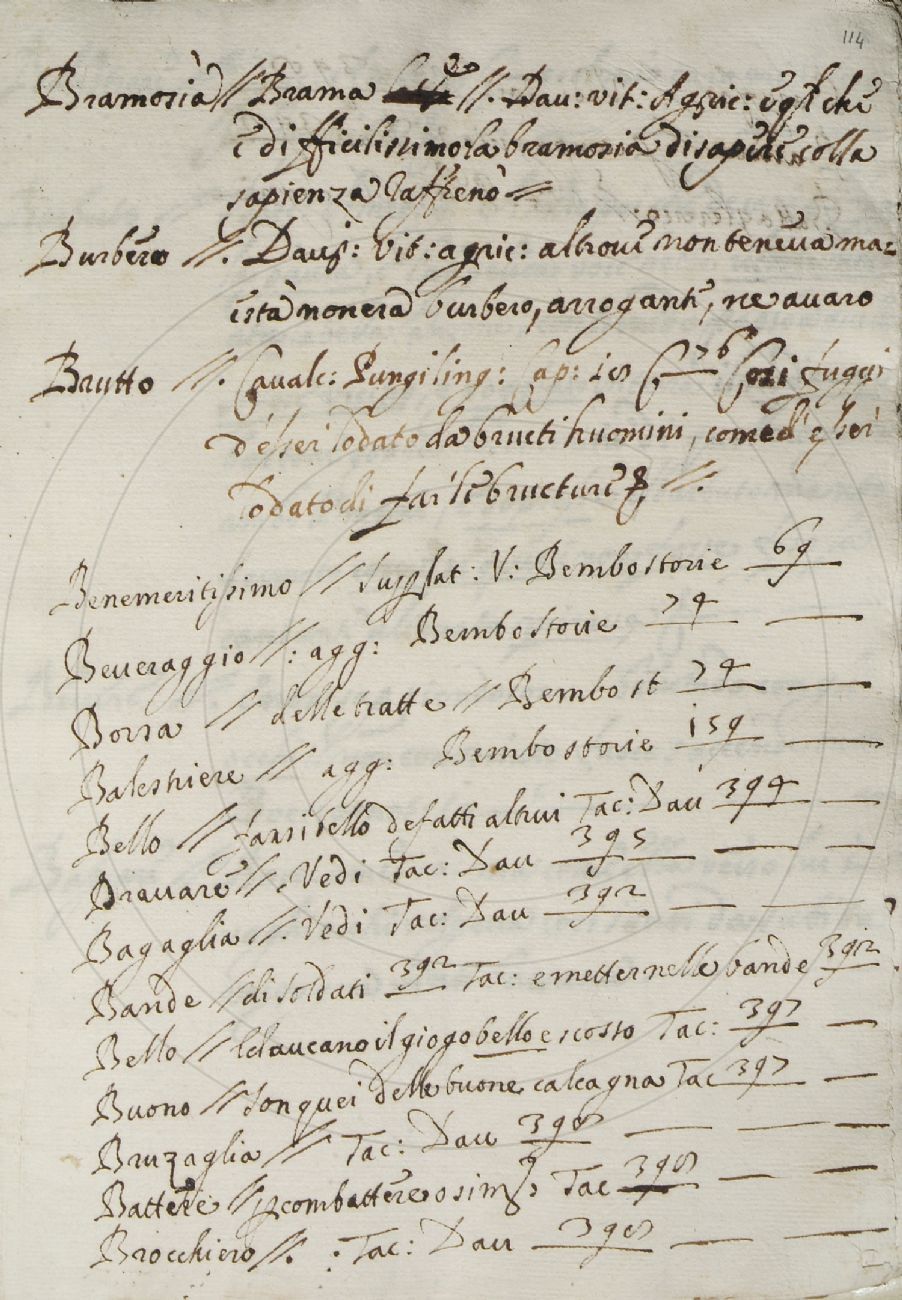 114
Bramosia // Brama // . Dav: vit: Agric: egli che
è difficilissimo la bramosia di sapere colla
sapienza raffrenò //
Burbero // . Dav: vit: agric: altroue non teneua ma=
està non era burbero, arrogante, ne auaro
Brutto // . Caualc: Pungiling: Cap: Così fuggi
d'esser lodato da brutti huomini, come d'esser
lodato di far le brutture //.
Benemeritissimo // V: Bembo storie 69
Beueraggio // : agg: Bembo storie 74
Borra // delle tratte // Bembo st 74
Balestriere // agg: Bembo storie 159
Bello // farsi bello de fatti altrui Tac: Dau 394
Brauare // . Vedi Tac: Dau 395
Bagaglia // . Vedi Tac: Dau 392
Bande // di soldati 392 Tac: e metter nelle bande 392
Bello // il giogo bello e scosso Tac: 397
Buono // son quei delle buone calcagna Tac 397
Bruzaglia // Tac: Dau 398
Battere // p combattere Tac 398
Brocchiero // . : Tac: Dau 398